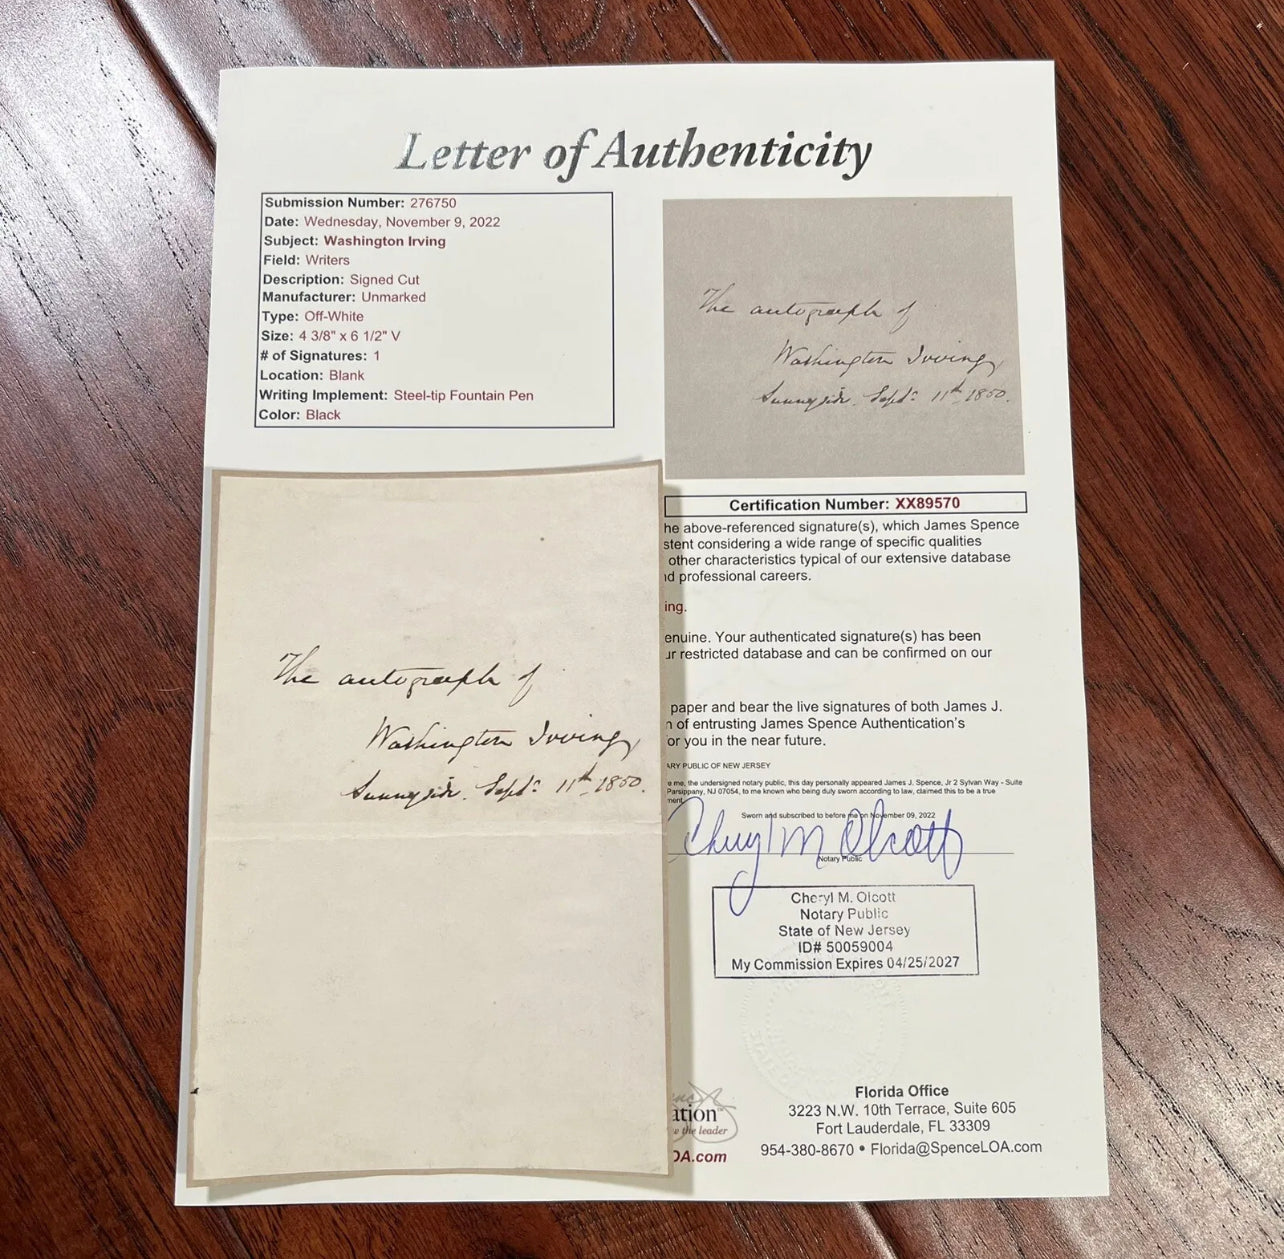 Letter of Authenticity
Submission Number: 276750
Date: Wednesday, November 9, 2022
Subject: Washington Irving
Field: Writers
Description: Signed Cut
Manufacturer: Unmarked
Type: Off-White
Size: 4 3/8" x 6 1/2" V
# of Signatures: 1
Location: Blank
Writing Implement: Steel-tip Fountain Pen
Color: Black
The autograph of
Washington Irving
Sunnyside. Sept: 11th 1850.
Certification Number: XX89570
he above-referenced signature(s), which James Spence
stent considering a wide range of specific qualities
other characteristics typical of our extensive database
nd professional careers.
ing.
enuine. Your authenticated signature(s) has been
ur restricted database and can be confirmed on our
paper and bear the live signatures of both James J.
n of entrusting James Spence Authentication's
or you in the near future.
ARY PUBLIC OF NEW JERSEY
e me, the undersigned notary public, this day personally appeared James J. Spence, Jr 2 Sylvan Way - Suite
Parsippany, NJ 07054, to me known who being duly sworn according to law, claimed this to be a true
ment.
Sworn and subscribed to before me on November 09, 2022
Cheryl M Olcott
Notary Public
Cheryl M. Olcott
Notary Public
State of New Jersey
ID# 50059004
My Commission Expires 04/25/2027
The autograph of
Washington Irving
Sunnyside. Sept: 11th 1850.
ation
w the leader
OA.com
Florida Office
3223 N.W. 10th Terrace, Suite 605
Fort Lauderdale, FL 33309
954-380-8670 • Florida@SpenceLOA.com